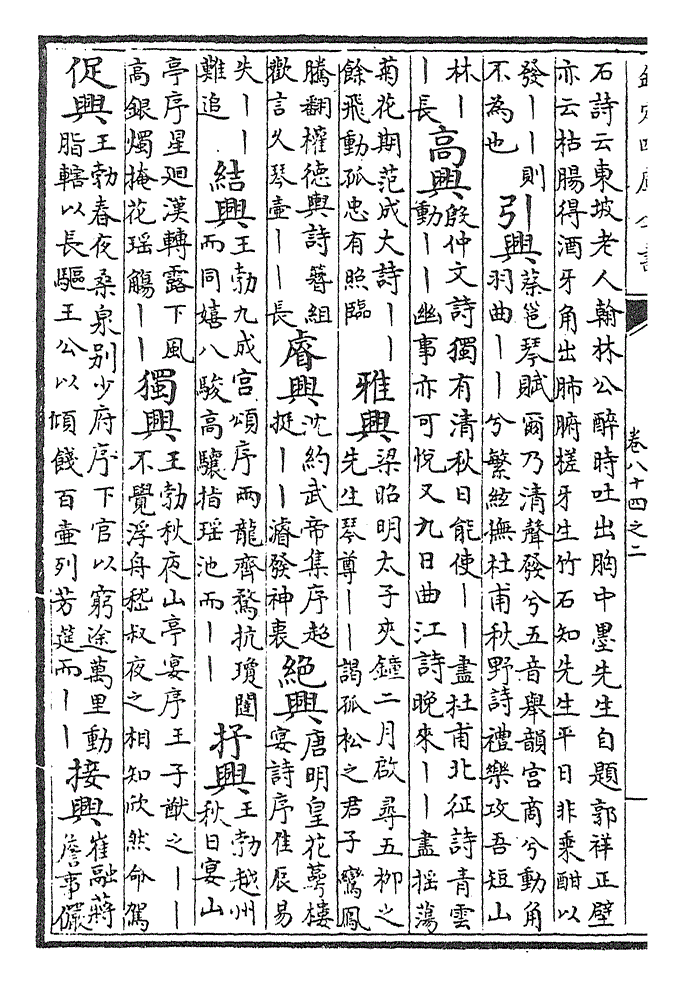 欽定四庫全書
卷八十四之二
一
石詩云東坡老人翰林公醉時吐出胸中墨先生自題郭祥正壁
亦云枯腸得酒牙角出肺腑槎牙生竹石知先生平日非乘酣以
發丨丨則
不為也
引興
蔡邕琴賦爾乃清聲發兮五音舉韻宮商兮動角
羽曲丨丨兮繁絃撫杜甫秋野詩禮樂攻吾短山
林丨
丨長
高興
殷仲文詩獨有清秋日能使丨丨盡杜甫北征詩青雲
動丨丨幽事亦可悅又九日曲江詩晚來丨丨盡搖蕩
菊花期范成大詩丨丨
餘飛動孤忠有照臨
雅興
梁昭明太子夾鐘二月啟尋五柳之
先生琴尊丨丨謁孤松之君子鸞鳳
騰翻權德輿詩簪組
歡言久琴壺丨丨長
睿興
沈約武帝集序超
挺丨丨濬發神衷
絕興
唐明皇花萼樓
宴詩序佳辰易
失丨丨
難追
結興
王勃九成宮頌序兩龍齊騖抗瓊闥
而同嬉八駿高驤指瑶池而丨丨
抒興
王勃越州
秋日宴山
亭序星迴漢轉露下風
高銀燭掩花瑶觴丨丨
獨興
王勃秋夜山亭宴序王子猷之丨丨
不覺浮舟嵇叔夜之相知欣然命駕
促興
王勃春夜桑泉别少府序下官以窮途萬里動
脂轄以長驅王公以傾餞百壺列芳筵而丨丨
接興
崔融蔣
詹事儼